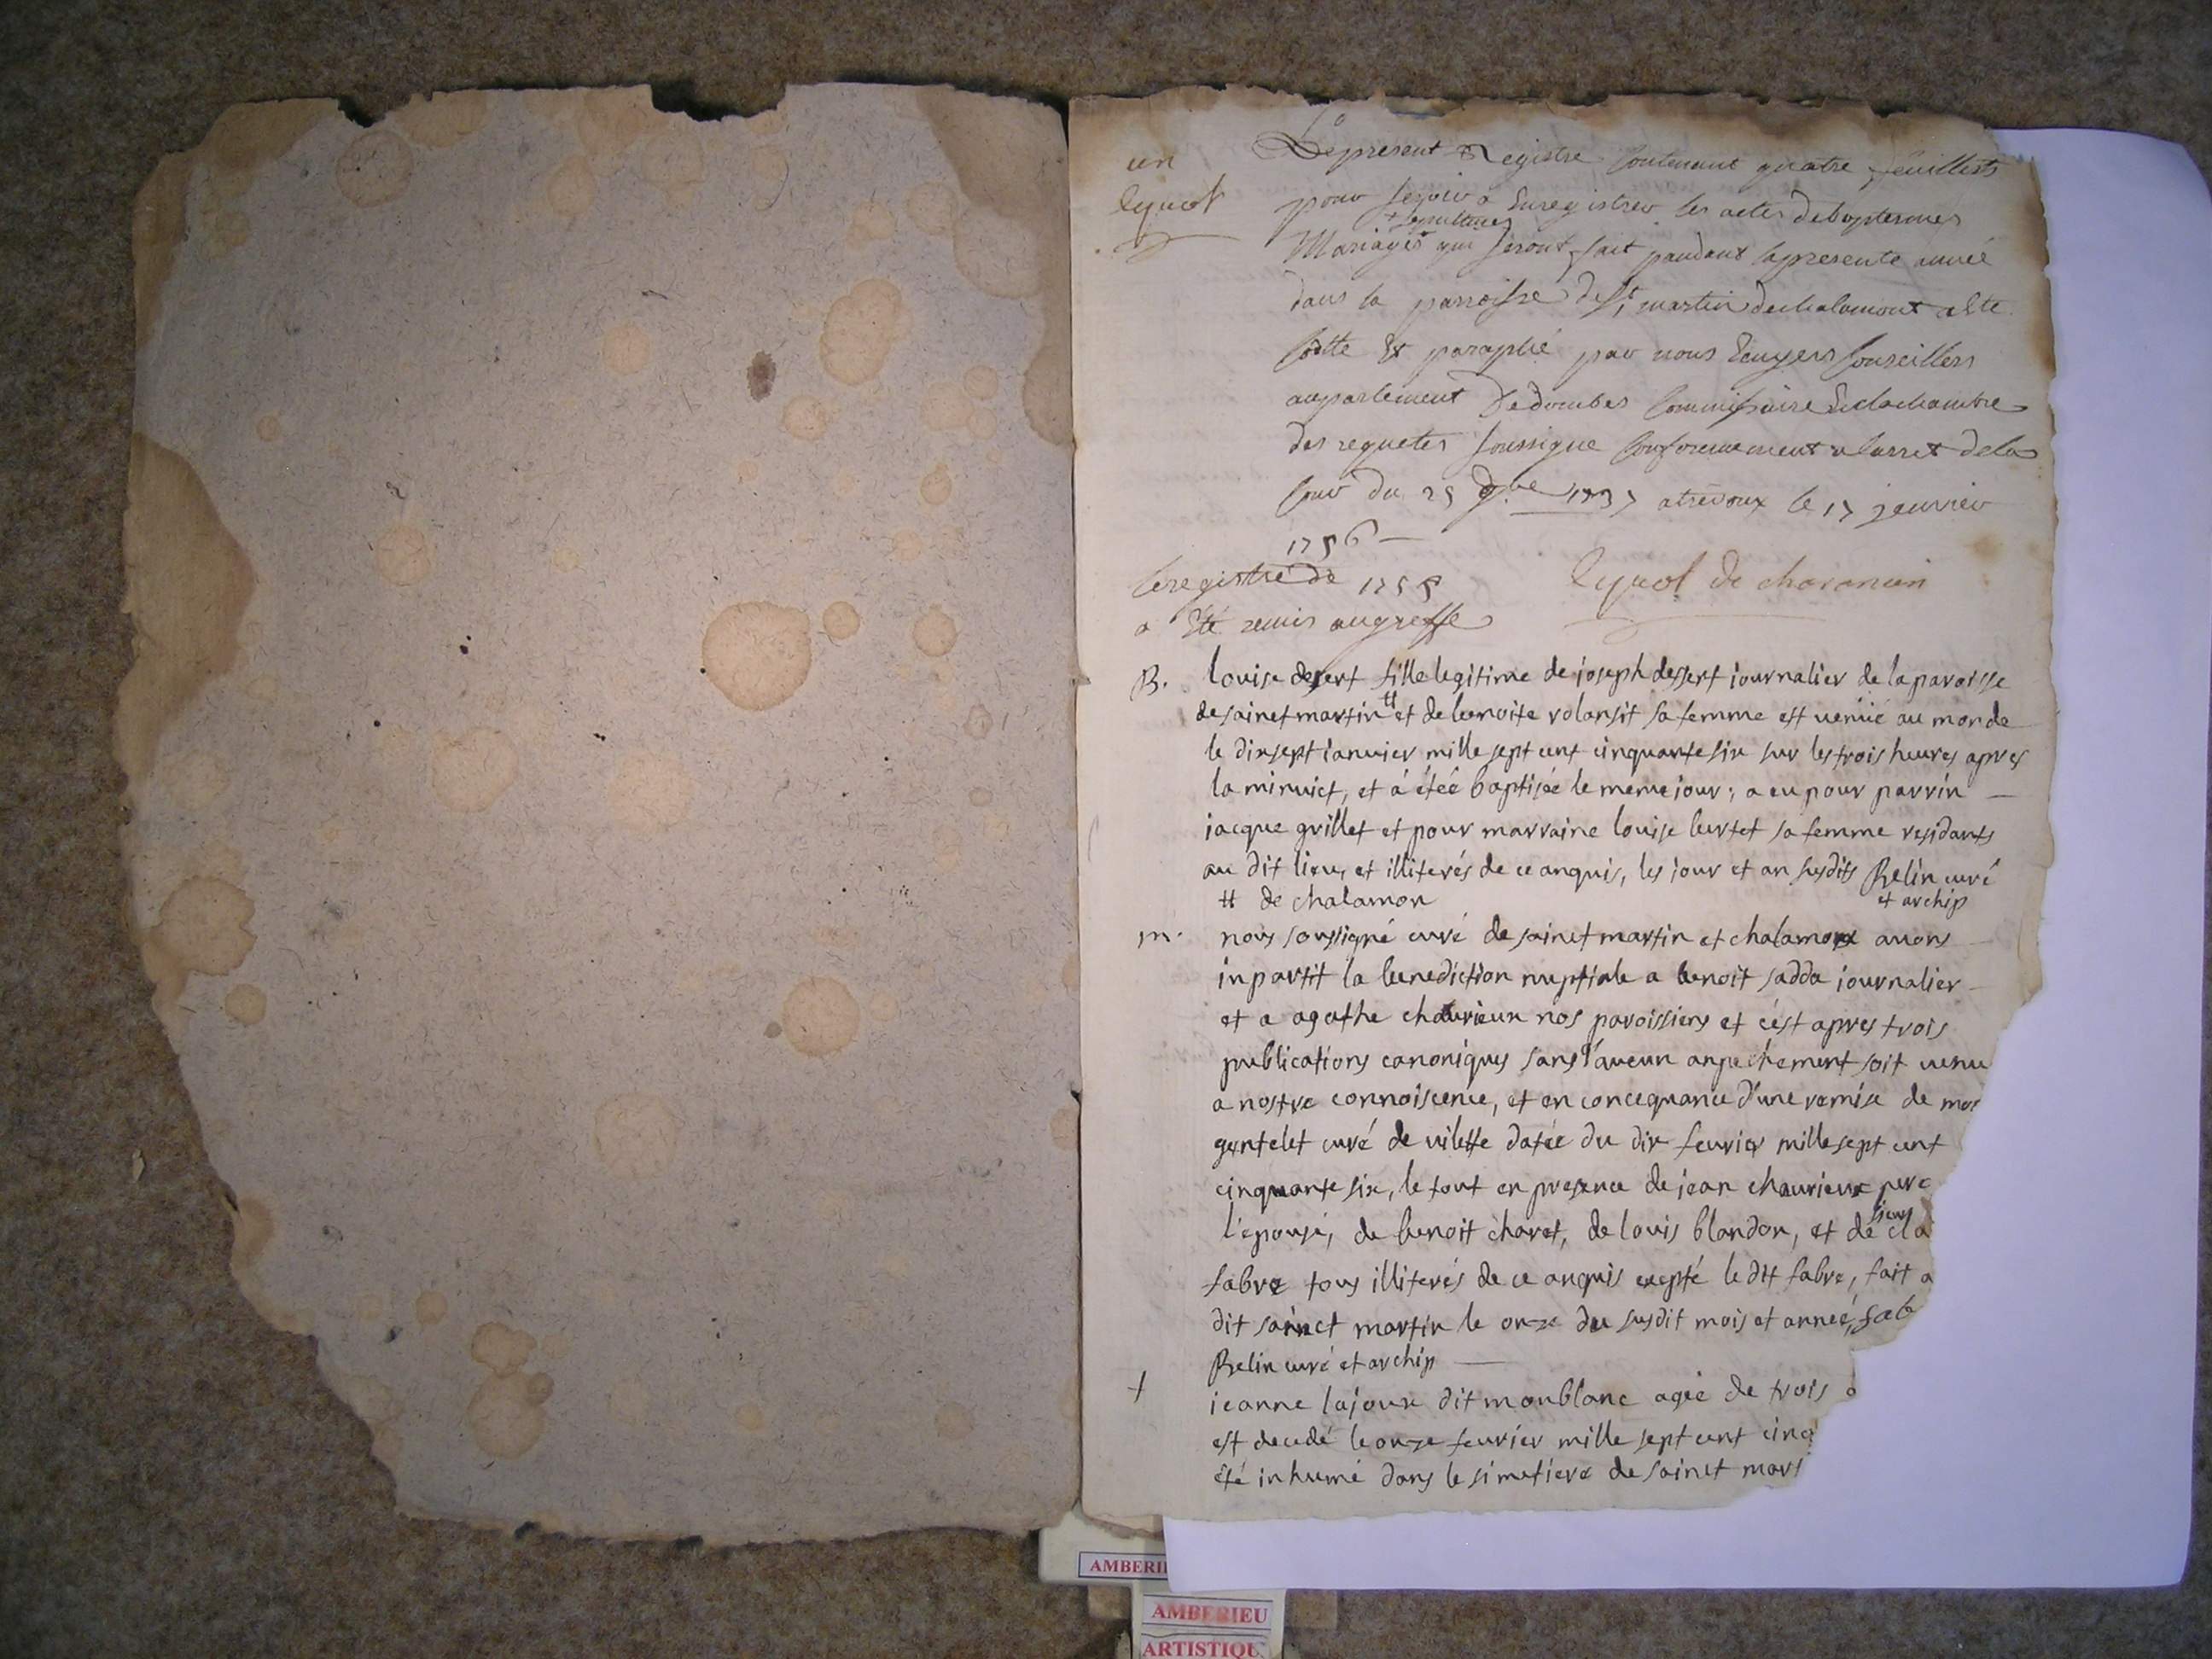 un
Le present Registre Contenant quatre feuillets
pour servir a Enregistrer les actes de baptesmes
+ sepultures
Mariages + qui seront fait pandant la presente année
dans la parroisse de St martin de chalamont a Ete
Cotte Et paraphé par nous Ecuyers Conseillers
au parlement De dombes Commissaire En la chambre
des requetes soussigne Conformement a larret de la
Cour du 25 9bre 1737 a trevoux le 17 janvier
1756
le registre de 1755
a Eté remis au greffe
B. louise desert fille legitime de joseph dessert journalier de la paroisse
de sainct martin # et de benoite volansit sa femme est venüe au monde
le dixsept ianvier mille sept cent cinquante six sur les trois heures apres
la minuict, et á étéé baptisée le meme iour ; a eu pour parrin
iacque grillet et pour marraine louise burtet sa femme residants
au dit lieu, et illiterés de ce anquis, les iour et an susdits Belin curé
# de chalamon et archip
m. nous soussigné curé de sainct martin et chalamon auons
inpartit la benediction nuptiale a benoit sadda iournalier
et a agathe chaurieux nos paroissiens et cést apres trois
publications canoniques sans qu'aucun anpechement soit venu
a nostre connoiscence, et en concequance d'une remise de
gontelet curé de vilette datée du dix feurier mille sept cent
cinquante six, le tout en presence de jean chaurieux pere
l'épousé, de benoit charet, de louis blandon, et dé sieur cla
fabre tous illiterés de ce anquis exepté le dit fabre, fait a
dit sainct martin le onze du susdit mois et anneé, fab
Belin curé et archip
+ ieanne lajoux dit monblanc agée de trois
est decedé le onze feurier mille sept cent cinq
été inhumé dans le simetiere de sainct mart
AMBERIE
AMBERIEU
ARTISTIQU